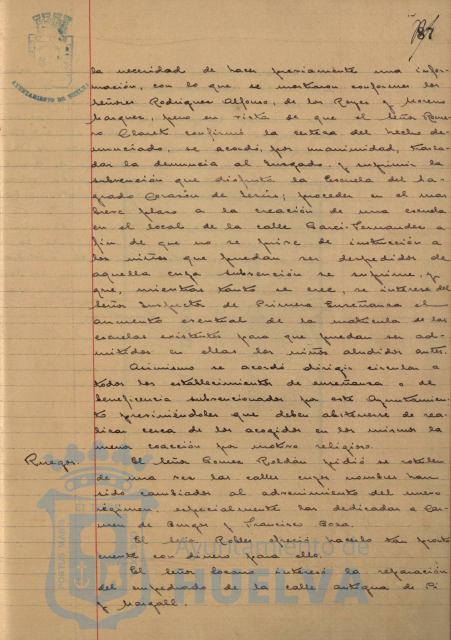 87
AYUNTAMIENTO DE HUELVA
la necesidad de hacer previamente una infor-
mación, con lo que, se mostraron conformes los
señores Rodriguez Alfonso, de los Reyes y Moreno
Marquez, pero en vista de que el Señor Rome-
ro Claret confirmó la certeza del hecho de-
nunciado, se acordó, por unanimidad, trasla-
dar la denuncia al Juzgado, y suprimir la
subvención que disfruta la Escuela del Sa-
grado Corazón de Jesús; proceder en el mas
breve plazo a la creación de una escuela
en el local de la calle Garci-Fernandez a
fin de que no se prive de instrucción a
los niños que puedan ser despedidos de
aquella cuya subvención se suprime, y
que, mientras tanto se cree, se interese del
Señor Inspector de Primera Enseñanza el
aumento eventual de la matricula de las
escuelas existentes para que puedan ser ad-
mitidos en ellas los niños aludidos antes.
Asimismo se acordó dirigir circular a
todos los establecimientos de enseñanza o de
beneficencia subvencionados por este Ayuntamien-
to previniéndoles que deben abstenerse de rea-
lizar cerca de los acogidos en los mismos la
menor coacción por motivo religioso.
Ruegos. El Señor Gomez Roldán pidió se rotulen
de una vez las calles cuyos nombres han
sido cambiados al advenimiento del nuevo
régimen, especialmente las dedicadas a Car-
men de Burgos y Francisco Boza.
El Señor Robles ofreció hacerlo tan pronto
cuente con dinero para ello.
El Señor Lozano interesó la reparación
del empedrado de la calle antigua de Pi
y Margall.
PORTUS MARIS
Ayuntamiento de
HUELVA